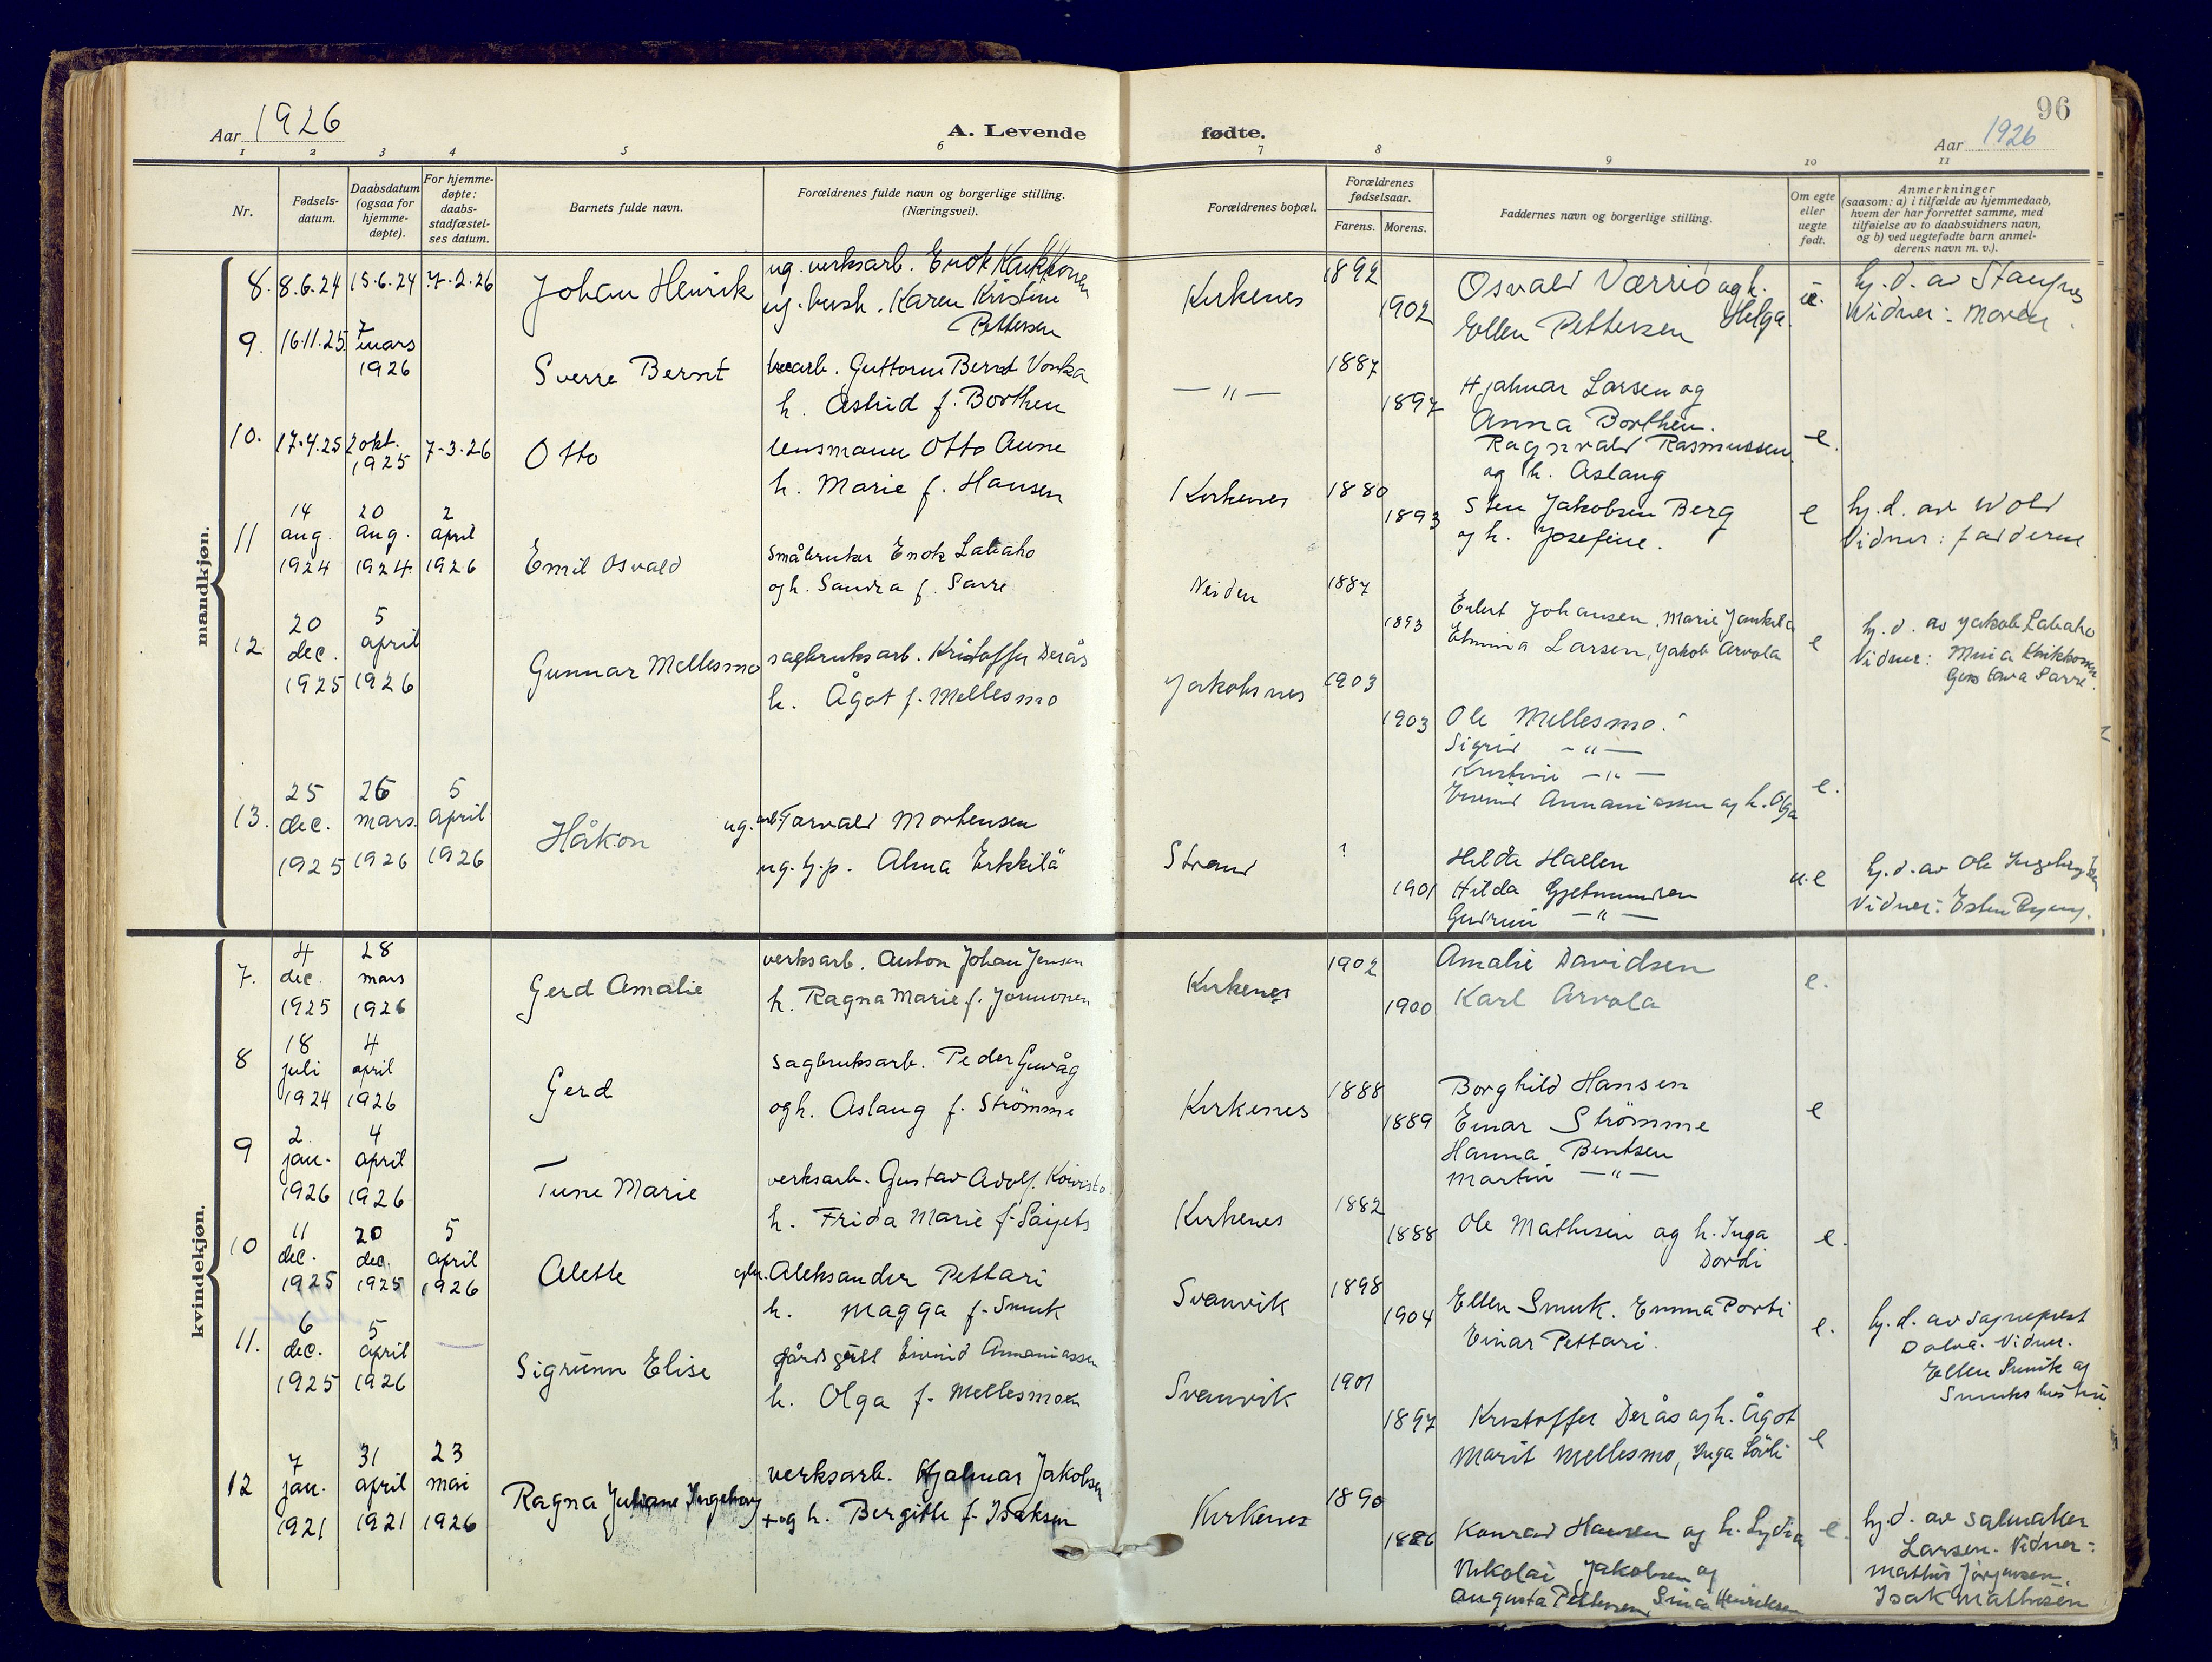 96
Aar 1926
A. Levende
fødte.
Aar 1926
1 2 3 4 5 6 7 8 9 10 11
Nr.
Fødsels-
datum.
Daabsdatum
(ogsaa for
hjemme-
døpte).
For hjemme-
døpte:
daabs-
stadfæstel-
ses datum.
Barnets fulde navn.
Forældrenes fulde navn og borgerlige stilling.
(Næringsvei).
Forældrenes bopæl.
Forældrenes
fødselsaar.
Farens. Morens.
Faddernes navn og borgerlige stilling.
Om egte
eller
uegte
født.
Anmerkninger
(saasom: a) i tilfælde av hjemmedaab,
hvem der har forrettet samme, med
tilføielse av to daabsvidners navn,
og b) ved uegtefødte barn anmel-
derens navn m. v.).
mandkjøn.
8. 8.6.24 15.6.24 7.2.26
Johan Henrik
ug. verksarb. Enok
ug. hush. Karen Kristine
Pettersen
Kirkenes
1892
1902
Osvald Værriö og h.
Helga
Ellen Pettersen
hj. d. av
Vidner: Moren
9. 16.11.25 7 mars
1926
Sverre Bernt
Guttorm Bernt Vonka
h. Astrid f. Borthen
— " —
1887
1897
Hjalmar Larsen og
Anna Borthen.
Ragnvald Rasmussen
og h. Aslaug
e.
10. 17.4.25 2 okt.
1925 7-3.26
Otto
lensmann Otto Aune
h. Marie f. Hansen
Kirkenes
1880
1893
Sten Jakobsen Berg
og h. Josefine.
e
hj. d. av Wold
Vidner: fadderne
11 14
aug.
1924
20
aug.
1924
2
april
1926
Emil Osvald
småbruker Enok Labaho
og h. Sandra f. Sarre
Neiden
1887
1893
Johansen, Marie
Larsen, Jakob Arvola
e
hj. d. av Jakob Labaho
Vidner:
Sarre.
12. 20
dec.
1925
5
april
1926
Gunnar Mellesmo
sagbruksarb. Kristoffer Derås
h. Ågot f. Mellesmo
Jakobsnes
1903
1903
Ole Mellesmo.
Sigrid — " —
Kristine — " —
Eivind Annaniassen og h. Olga
e.
13. 25
dec.
1925
26
mars
1926
5
april
1926
Håkon
ug. arb. Torvald Mortensen
ug. Alma Erkkilä
Strand
?
1901
Hilda Hallen
Hilda
Gudrun — " —
u.e
hj. d. av Ole
Vidner:
kvindekjøn.
7. 4
dec.
1925
28
mars
1926
Gerd Amalie
verksarb. Anton Johan Jensen
h. Ragna Marie f.
Kirkenes
1902
1900
Amalie Davidsen
Karl Arvola
e.
8 18
juli
1924
4
april
1926
Gerd
sagbruksarb. Peder Guvåg
og h. Aslaug f. Strömme
Kirkenes
1888
1889
Borghild Hansen
Einar Strömme
Hanna Bentsen
Martin — " —
e
9 2.
jan.
1926
4
april
1926
Tune Marie
verksarb. Gustav Adolf Koivisto
h. Frida Marie f. Saijets
Kirkenes
1882
1888
Ole Mathisen og h. Inga
Dordi
e.
10 11
dec.
1925
20
dec.
1925
5
april
1926
Alette
Aleksander Pettari
h. Magga f. Smuk
Svanvik
1898
1904
Ellen Smuk. Emma Porti
Einar Pettari.
e.
hj. d. av sogneprest
Vidner.
Ellen Smuk og
Smuks hustru
11. 6
dec.
1925
5
april
1926
Sigrunn Elise
Eivind Annaniassen
h. Olga f. Mellesmoen
Svanvik
1901
1897
Kristoffer Derås og h. Ågot
Marit Mellesmo, Inga
e
12 7
jan.
1921
31
april
1921
23
mai
1926
Ragna Juliane Ingeborg
verksarb. Hjalmar Jakobsen
+ og h. Bergitte f. Isaksen
Kirkenes
1890
1886
Konrad Hansen og h. Lydia
Nikolai Jakobsen og
Augusta Pettersen, Henriksen
e.
hj. d. av salmaker
Larsen. Vidner:
Mathis Jörgensen.
Isak Mathisen